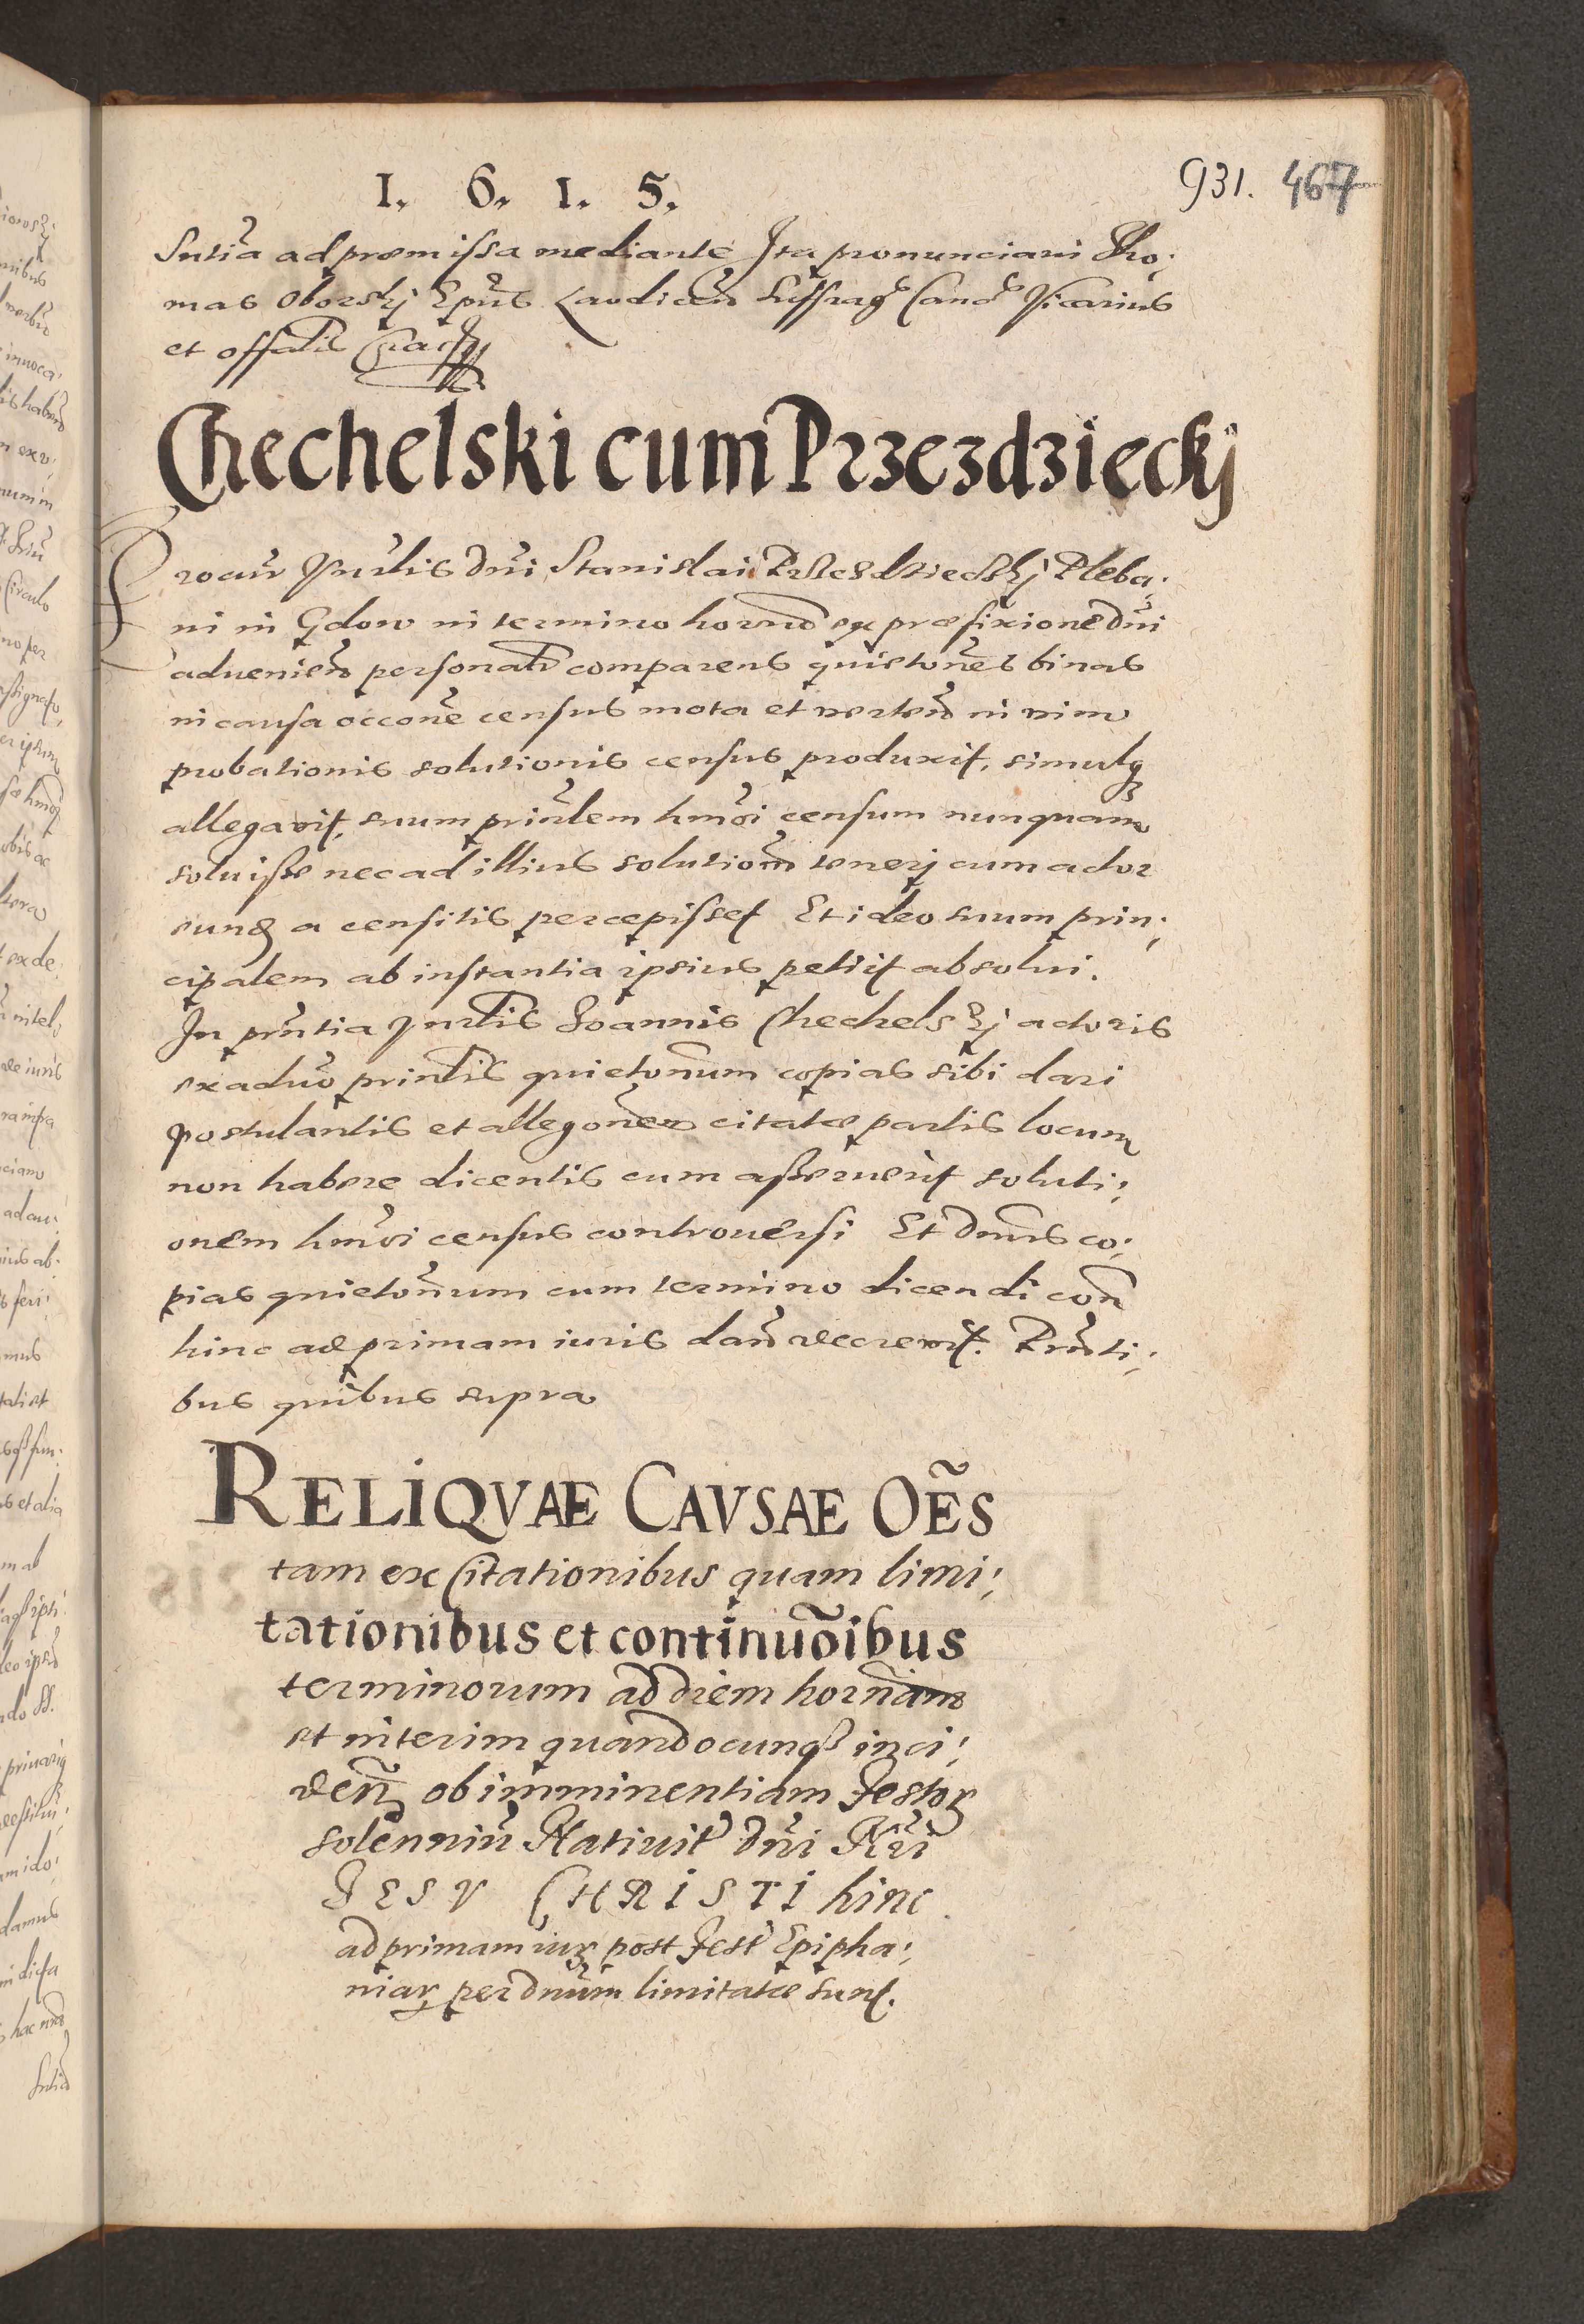 1. 6. 1. 5.
931. 467
Sntia ad præmissa mediante Ita pronunciavi Tho;
mas Oborskj Epus Laodicen Suffrag Can Vicarius
et offalis Crac
Chechelski cum Przezdzieckj
Procur Vnrlis Dni Stanislai Przezdzieckj Pleba;
ni in Gdow in termino horno ex præfixione Dni
advenien personalr comparens quietones binas
in causa occone census mota et verten in vim
probationis solutionis census produxit, simulq
allegavit, suum prinlem hmoi censum nunquam
soluisse nec ad illius solutiom tenerj cum actor
eund a censitis percepisset Et ideo suum prin;
cipalem ab instantia ipsius petiit absolui.
In prntia Vnrlis Joannis Chechelskj actoris
ex aduo prinlis quietonum copias sibi dari
postulantis et allegonem citatæ partis locum
non habere dicentis cum asseruerit soluti;
onem hmoi census controuersi Et Dnus co;
pias quietonum cum termino dicendi con
hinc ad primam iuris dan decrevit. Prnti;
bus quibus supra
RELIQVAE CAVSAE OES
tam ex Citationibus quam limi;
tationibus et continuõibus
terminorum ad diem hornam
et interim quandocunq inci;
den ob imminentiam Festor
solenniu Natiuit Dni Nri
JESV CHRISTI hinc
ad primam iur post Fest Epipha;
niar per Dnum limitatæ sunt.